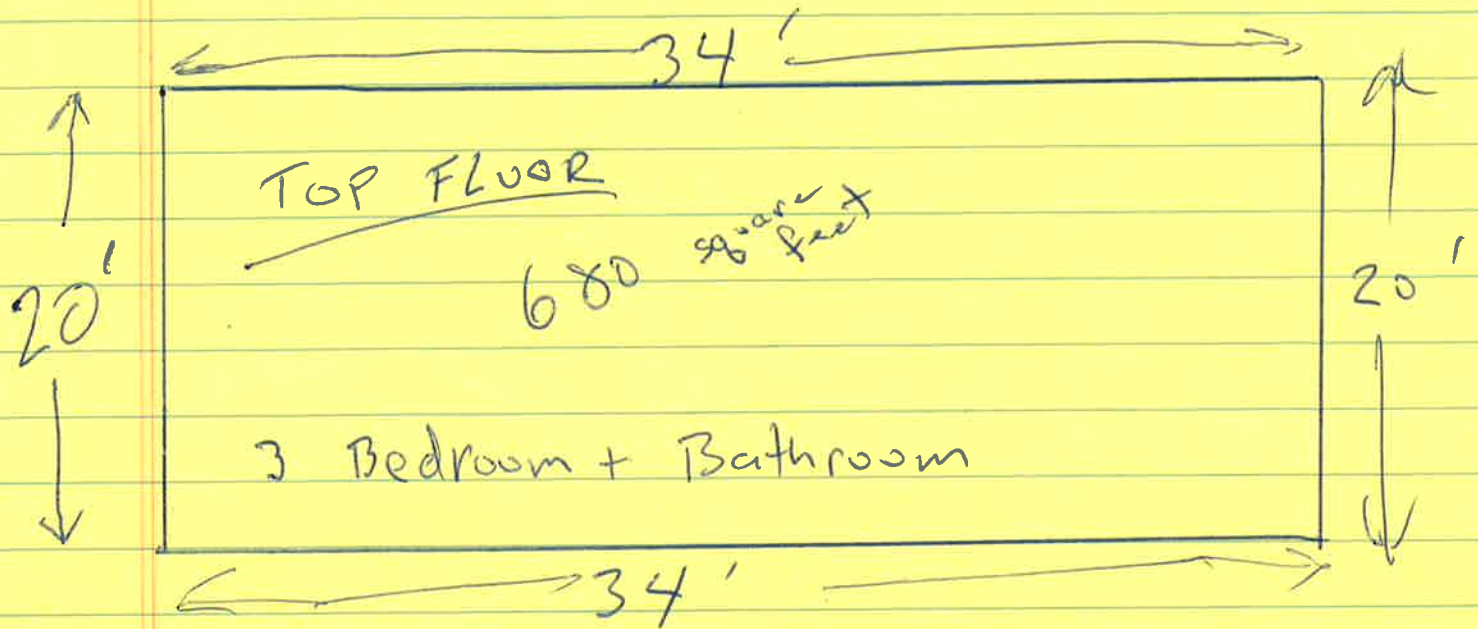 34'
TOP FLOOR
680 square feet
20'
20'
3 Bedroom + Bathroom
34'